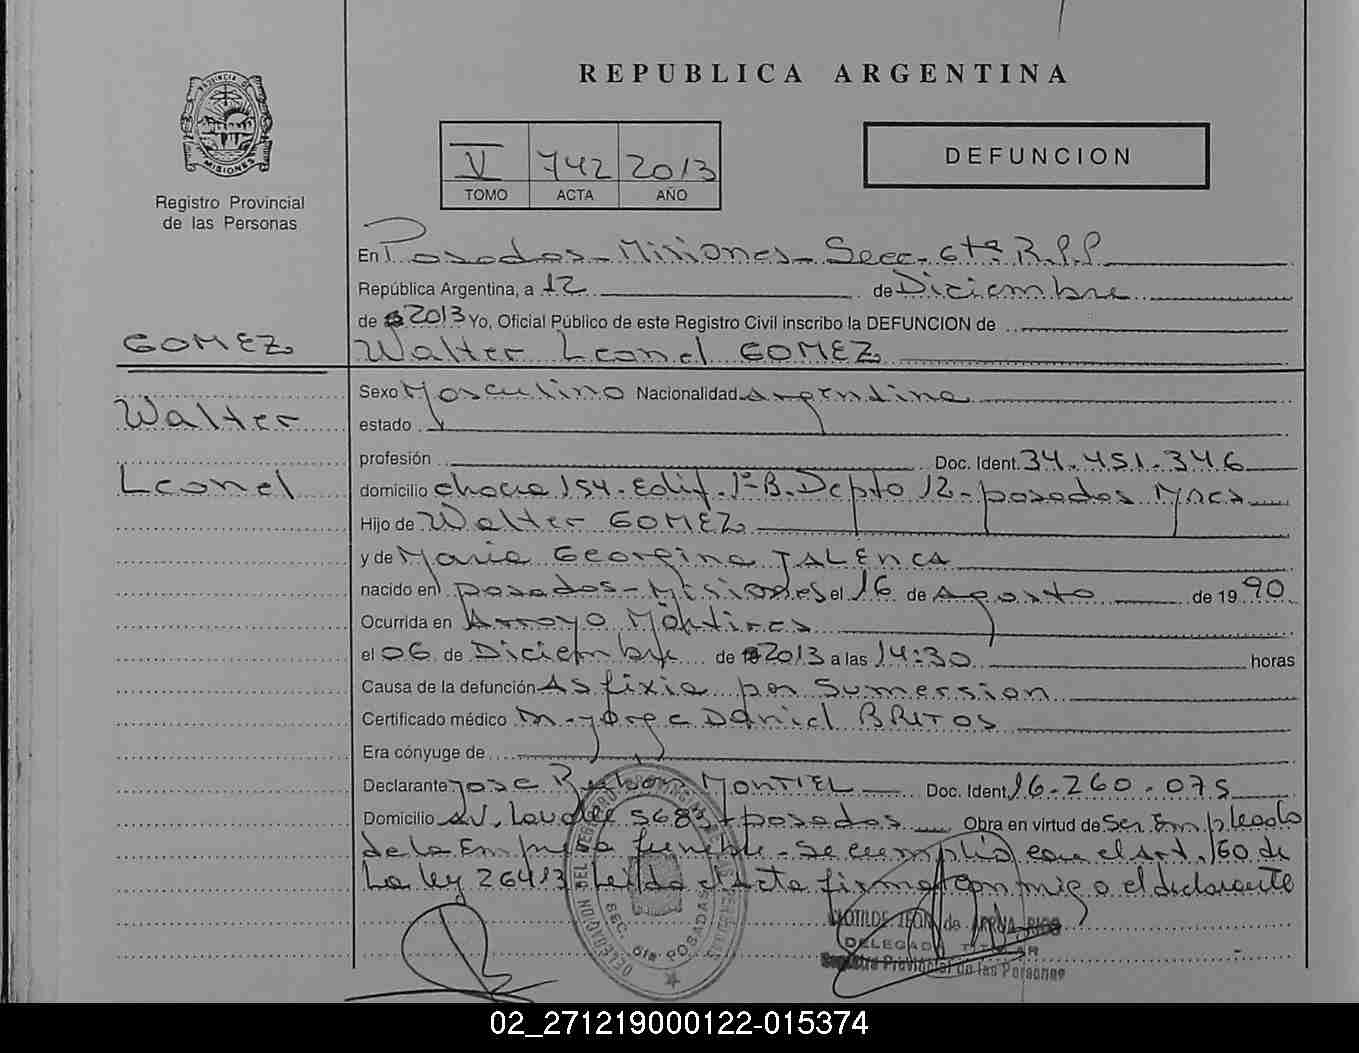 REPUBLICA ARGENTINA
PROVINCIA DE
MISIONES
Registro Provincial
de las Personas
V 742 2013
TOMO ACTA AÑO
DEFUNCION
En Posadas - Misiones - Secc. 6ta R.P.P
República Argentina, a 12 de Diciembre
de 2013 Yo, Oficial Público de este Registro Civil inscribo la DEFUNCION de
GOMEZ
Walter Leonel GOMEZ
Sexo Masculino Nacionalidad Argentina
Walter
estado
profesión Doc. Ident. 34.451.346
Leonel
domicilio chacra 154 - Edif. 1º B. Depto 12 - posadas Mnes
Hijo de Walter GOMEZ
y de Maria Georgina
nacido en posadas - Misiones el 16 de Agosto de 19 90
Ocurrida en Arroyo Mártires
el 06 de Diciembre de 2013 a las 14:30 horas
Causa de la defunción Asfixia por Sumersion
Certificado médico M. Jorge Daniel BRITOS
Era cónyuge de
Declarante Jose Ruben MONTIEL Doc. Ident. 16.260.075
Domicilio AV. 5683 - posadas Obra en virtud de Ser Empleado
de la Empresa funebre - Se cumplió con el Art. 60 de
La ley 26413 Leida el Acta firma con migo el declarante
DELEGACION DEL REGISTRO
SEC. 6ta POSADAS
CLOTILDE de
DELEGADA TITULAR
Registro Provincial de las Personas
02_271219000122-015374